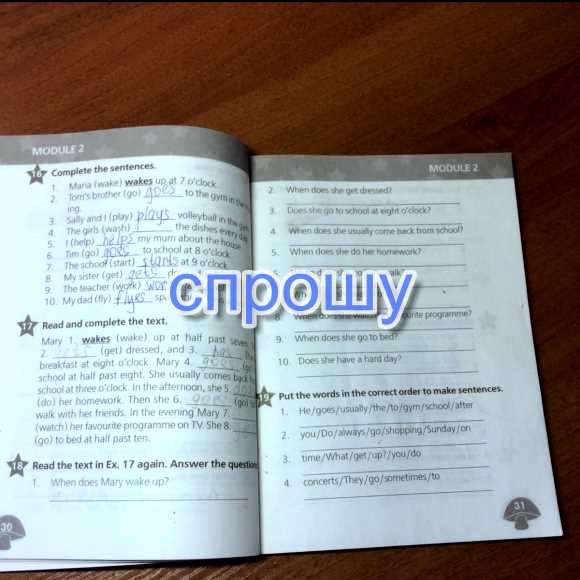 MODULE 2
16 Complete the sentences.
1. Maria (wake) wakes up at 7 o'clock.
2. Tom's brother (go) goes to the gym in the
ing.
3. Sally and I (play) plays volleyball in the gym
4. The girls (wash) the dishes every day
5. I (help) helps my mum about the house.
6. Tim (go) goes to school at 8 o'clock.
7. The school (start) starts at 9 o'clock.
8. My sister (get) gets
9. The teacher (work) wor
10. My dad (fly) flyes
17 Read and complete the text.
Mary 1. wakes (wake) up at half past seven
2. (get) dressed, and 3. has
breakfast at eight o'clock. Mary 4. (go)
school at half past eight. She usually comes back
school at three o'clock. In the afternoon, she 5.
(do) her homework. Then she 6. goes (go)
walk with her friends. In the evening Mary 7.
(watch) her favourite programme on TV. She 8.
(go) to bed at half past ten.
18 Read the text in Ex. 17 again. Answer the question
1. When does Mary wake up?
30
спрошу
MODULE 2
2. When does she get dressed?
3. Does she go to school at eight o'clock?
4. When does she usually come back from school?
5. When does she do her homework?
8. When does she favourite programme?
9. When does she go to bed?
10. Does she have a hard day?
19 Put the words in the correct order to make sentences.
1. He/goes/usually/the/to/gym/school/after
2. you/Do/always/go/shopping/Sunday/on
3. time/What/get/up?/you/do
4. concerts/They/go/sometimes/to
31